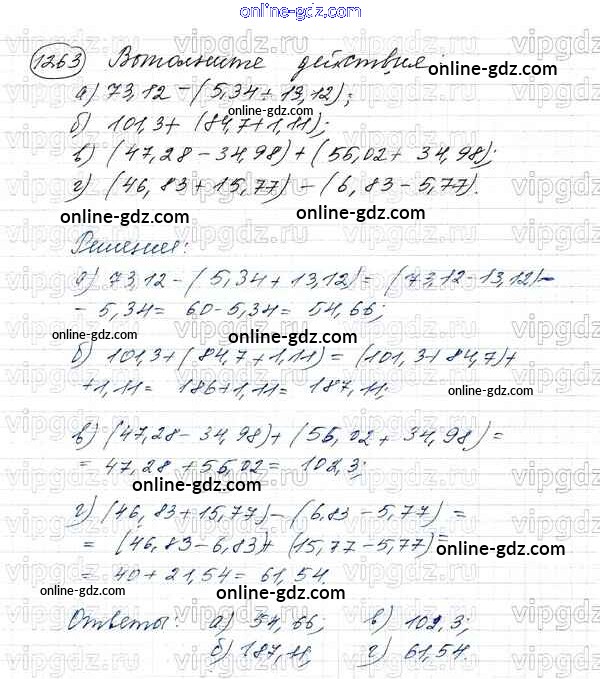 online-gdz.com
1263 Выполните действия:
online-gdz.com
а) 73,12 – (5,34 + 13,12);
б) 101,3 + (84,7 + 1,11);
в) (47,28 – 34,98) + (55,02 + 34,98);
г) (46,83 + 15,77) – (6,83 – 5,77).
online-gdz.com online-gdz.com
Решение:
а) 73,12 – (5,34 + 13,12) = (73,12 – 13,12) –
– 5,34 = 60 – 5,34 = 54,66;
online-gdz.com online-gdz.com
б) 101,3 + (84,7 + 1,11) = (101,3 + 84,7) +
+ 1,11 = 186 + 1,11 = 187,11;
online-gdz.com
в) (47,28 – 34,98) + (55,02 + 34,98) =
= 47,28 + 55,02 = 102,3;
online-gdz.com
г) (46,83 + 15,77) – (6,83 – 5,77) =
= (46,83 – 6,83) + (15,77 – 5,77) =
online-gdz.com
= 40 + 21,54 = 61,54.
online-gdz.com
Ответы: а) 54,66; в) 102,3;
online-gdz.com
б) 187,11; г) 61,54.
online-gdz.com